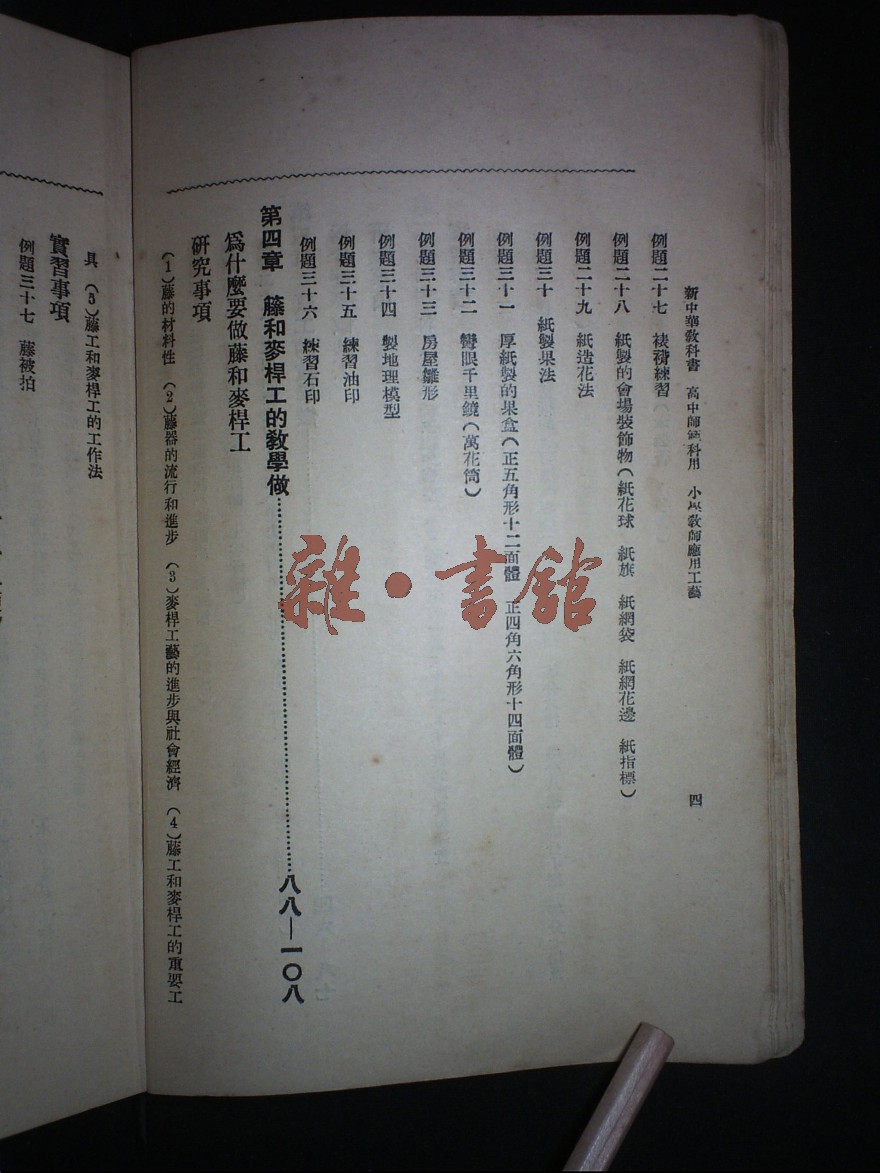 新中華教科書　高中師範科用　小學教師應用工藝　四
例題二十七　裱褙練習
例題二十八　紙製的會場裝飾物（紙花球　紙旗　紙網袋　紙網花邊　紙指標）
例題二十九　紙造花法
例題三十　紙製果法
例題三十一　厚紙製的果盒（正五角形十二面體　正四角六角形十四面體）
例題三十二　彎眼千里鏡（萬花筒）
例題三十三　房屋雛形
例題三十四　製地理模型
例題三十五　練習油印
例題三十六　練習石印
第四章　藤和麥桿工的教學做……八八—一〇八
爲什麼要做藤和麥桿工
研究事項
（1）藤的材料性　（2）藤器的流行和進步　（3）麥桿工藝的進步與社會經濟　（4）藤工和麥桿工的重要工
具　（5）藤工和麥桿工的工作法
實習事項
例題三十七　藤被拍
雜·書館